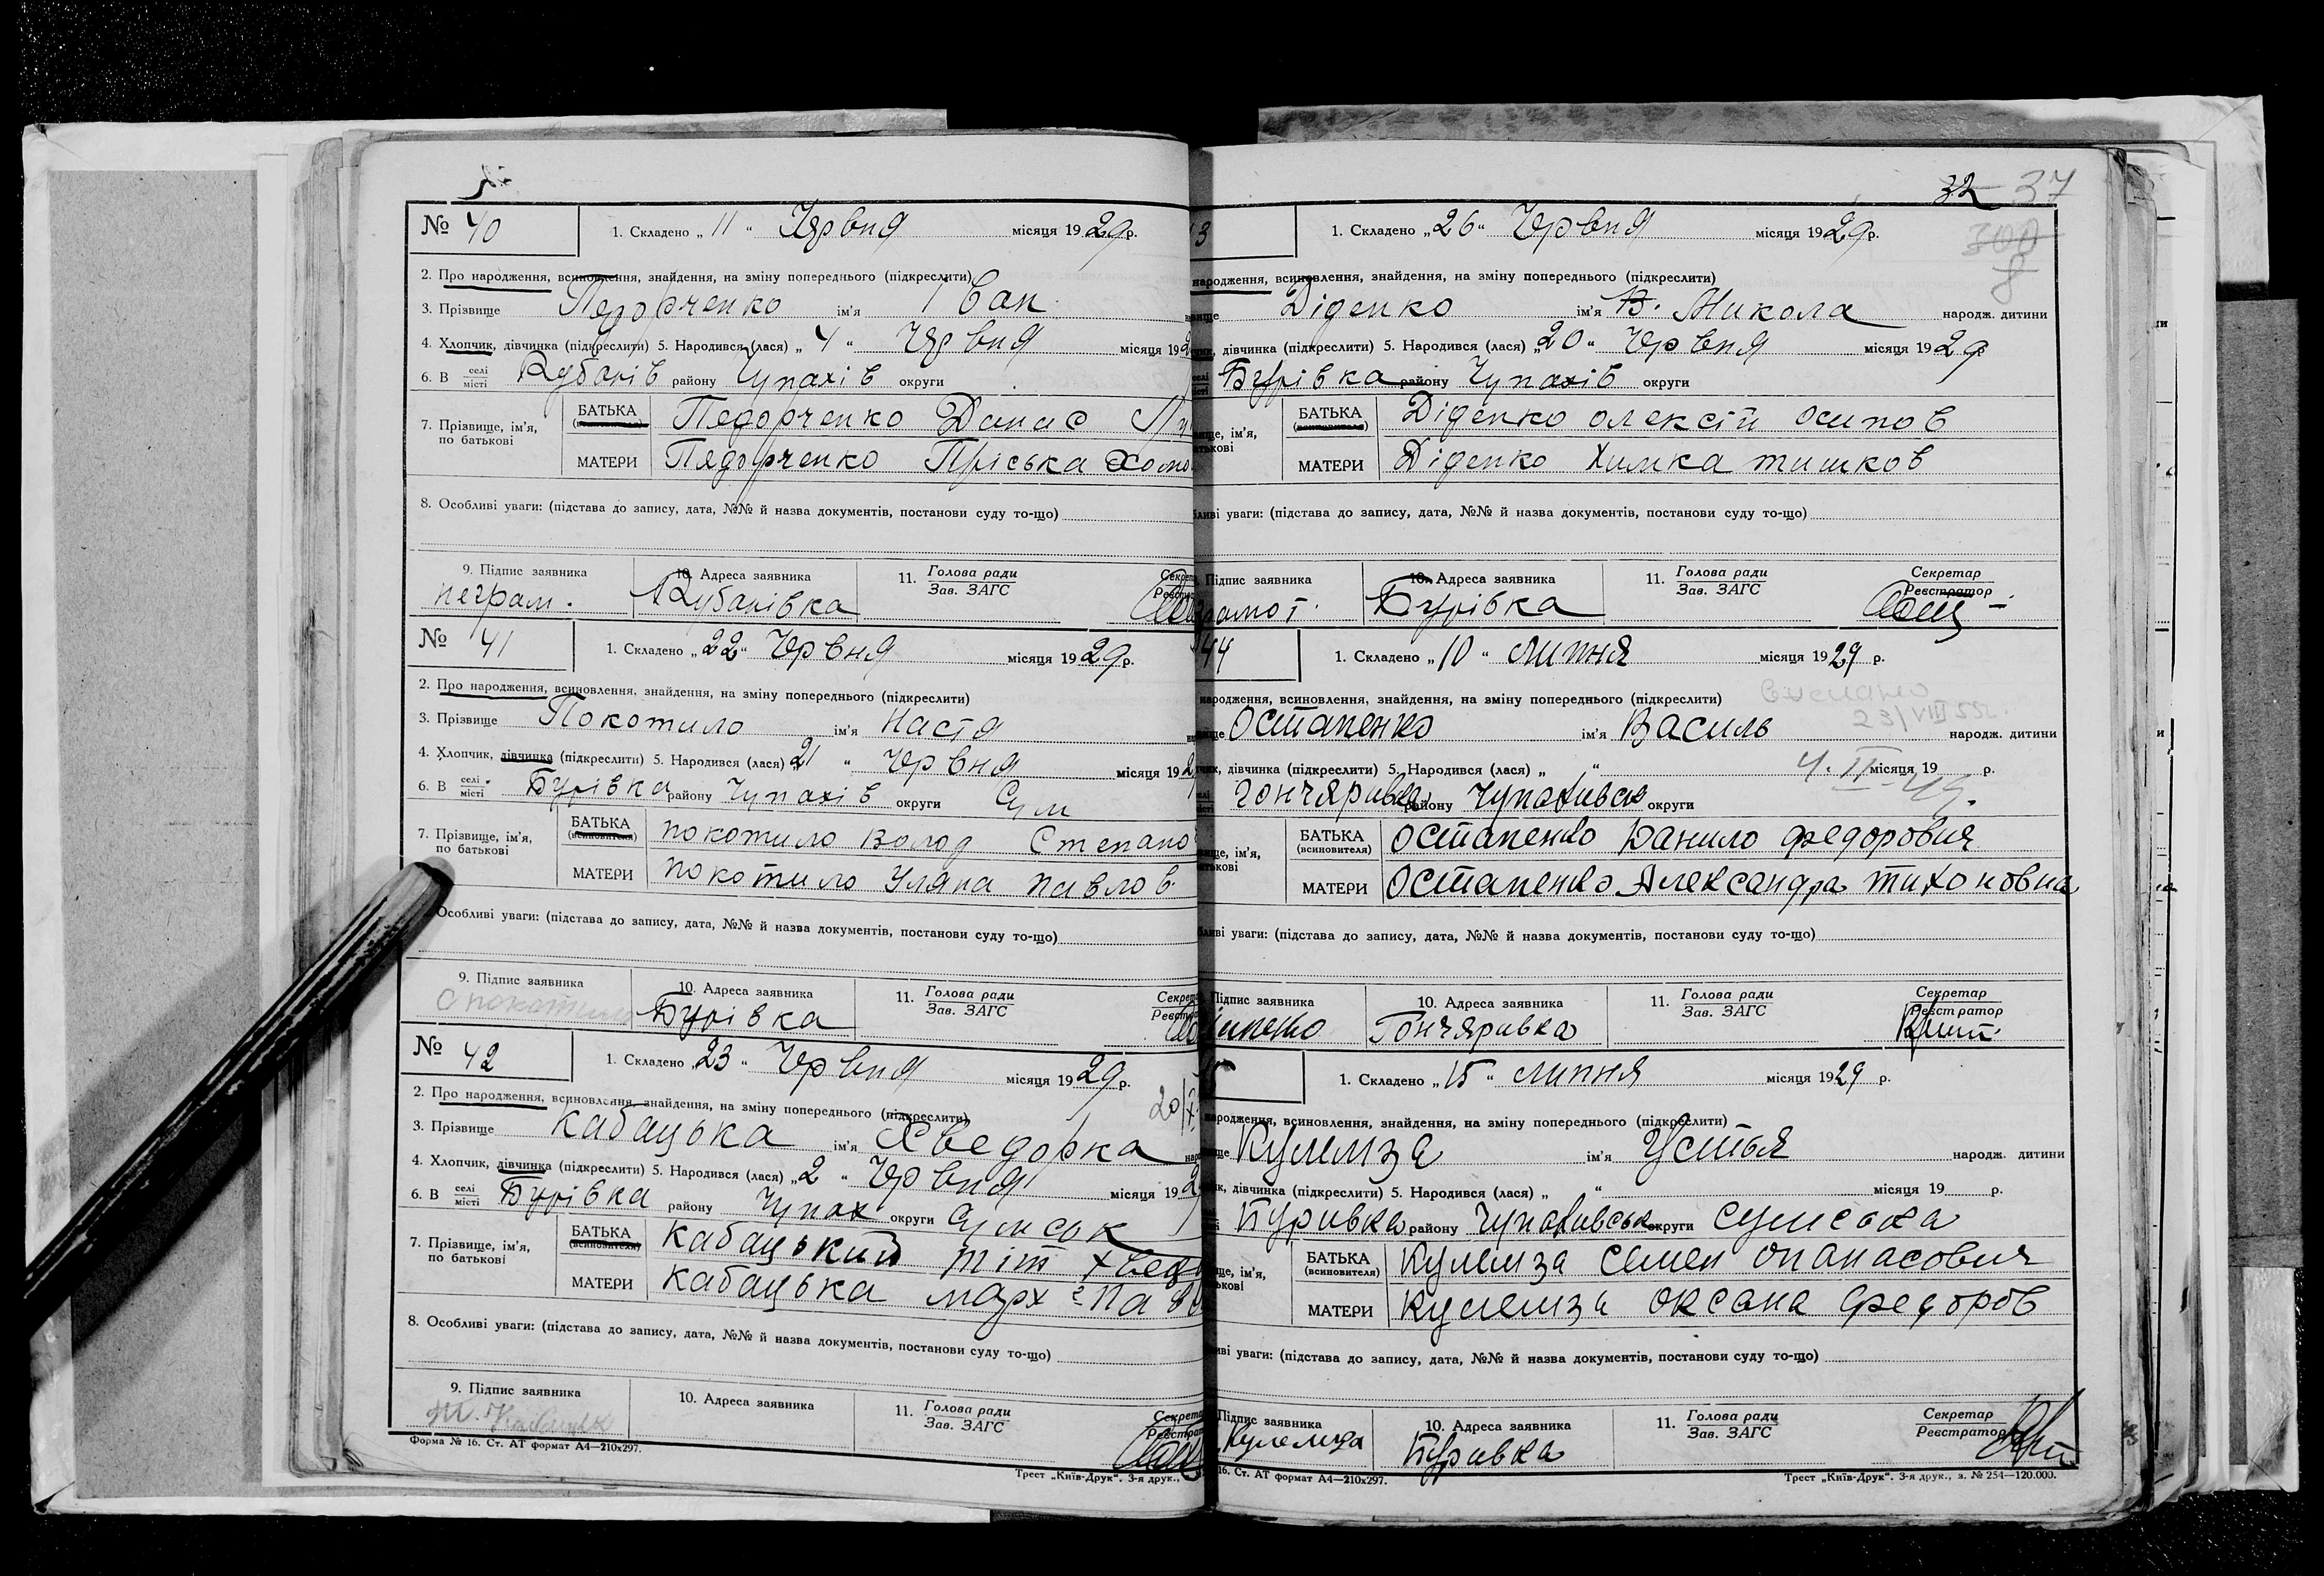 № 40 1. Складено „ 11 “ Чярвня місяця 1929 р.
2. Про народження, всиновлення, знайдення, на зміну попереднього (підкреслити)
3. Прізвище Педорченко ім'я Іван
4. Хлопчик, дівчинка (підкреслити) 5. Народився (лася) „ 4 “ Чярвня місяця 192
6. В селі місті району Чупахів округи
7. Прізвище, ім'я, по батькові
БАТЬКА (всиновителя) Педорченко Данас
МАТЕРИ Пядорченко Пріська Хомо
8. Особливі уваги: (підстава до запису, дата, №№ й назва документів, постанови суду то-що)
9. Підпис заявника 10. Адреса заявника 11. Голова ради Зав. ЗАГС Секрет Реєстр
неграм.
№ 41 1. Складено „ 22 “ Чрвня місяця 1929 р.
2. Про народження, всиновлення, знайдення, на зміну попереднього (підкреслити)
3. Прізвище Покотило ім'я Настя
4. Хлопчик, дівчинка (підкреслити) 5. Народився (лася) „ 21 “ Чрвня місяця 192
6. В селі місті Бурівка району Чупахів округи Сум
7. Прізвище, ім'я, по батькові
БАТЬКА (всиновителя) покотило Волод Степано
МАТЕРИ покотило Уляна павлов
Особливі уваги: (підстава до запису, дата, №№ й назва документів, постанови суду то-що)
9. Підпис заявника 10. Адреса заявника 11. Голова ради Зав. ЗАГС Секрет Реєстр
Бурівка
№ 42 1. Складено „ 23 “ Чрвня місяця 1929 р.
2. Про народження, всиновлення, знайдення, на зміну попереднього (підкреслити)
3. Прізвище Кабацька ім'я Хведорка
4. Хлопчик, дівчинка (підкреслити) 5. Народився (лася) „ 2 “ Чрвня місяця 192
6. В селі місті Бурівка району Чупах округи Сумськ
7. Прізвище, ім'я, по батькові
БАТЬКА (всиновителя) Кабацький тіт хвед
МАТЕРИ Кабацька
8. Особливі уваги: (підстава до запису, дата, №№ й назва документів, постанови суду то-що)
9. Підпис заявника 10. Адреса заявника 11. Голова ради Зав. ЗАГС Секрета Реєстрат
Форма № 16. Ст. АТ формат А4—210х297.
Трест „Київ-Друк“. 3-я друк.,
32 37
300
3 1. Складено „ 26 “ Чрвня місяця 1929 р.
народження, всиновлення, знайдення, на зміну попереднього (підкреслити)
Діденко ім'я В. Микола народж. дитини
дівчинка (підкреслити) 5. Народився (лася) „ 20 “ Чрвня місяця 1929
Бурівка району Чупахів округи
БАТЬКА (всиновителя) Діденко олексій осипов
МАТЕРИ Діденко Химка тишков
уваги: (підстава до запису, дата, №№ й назва документів, постанови суду то-що)
Підпис заявника 10. Адреса заявника 11. Голова ради Зав. ЗАГС Секретар Реєстратор
Бурівка
44 1. Складено „ 10 “ липня місяця 1929 р.
народження, всиновлення, знайдення, на зміну попереднього (підкреслити)
23/VIII
Остапенко ім'я Василь народж. дитини
дівчинка (підкреслити) 5. Народився (лася) „ “ 4. II місяця 19 р.
Гончяривка району Чупахивськ округи
БАТЬКА (всиновителя) Остапенко Данило федорович
МАТЕРИ Остапенко Александра тихоновна
уваги: (підстава до запису, дата, №№ й назва документів, постанови суду то-що)
Підпис заявника 10. Адреса заявника 11. Голова ради Зав. ЗАГС Секретар Реєстратор
Гончяривка
1. Складено „ 15 “ липня місяця 1929 р.
народження, всиновлення, знайдення, на зміну попереднього (підкреслити)
Кулемза ім'я Устья народж. дитини
дівчинка (підкреслити) 5. Народився (лася) „ “ місяця 19 р.
Буривка району Чупахивськ округи сумська
БАТЬКА (всиновителя) Кулемза Семен опанасович
МАТЕРИ Кулемза оксана федоров
уваги: (підстава до запису, дата, №№ й назва документів, постанови суду то-що)
Підпис заявника 10. Адреса заявника 11. Голова ради Зав. ЗАГС Секретар Реєстратор
Кулемза Буривка
16. Ст. АТ формат А4—210х297.
Трест „Київ-Друк“. 3-я друк., з. № 254—120.000.